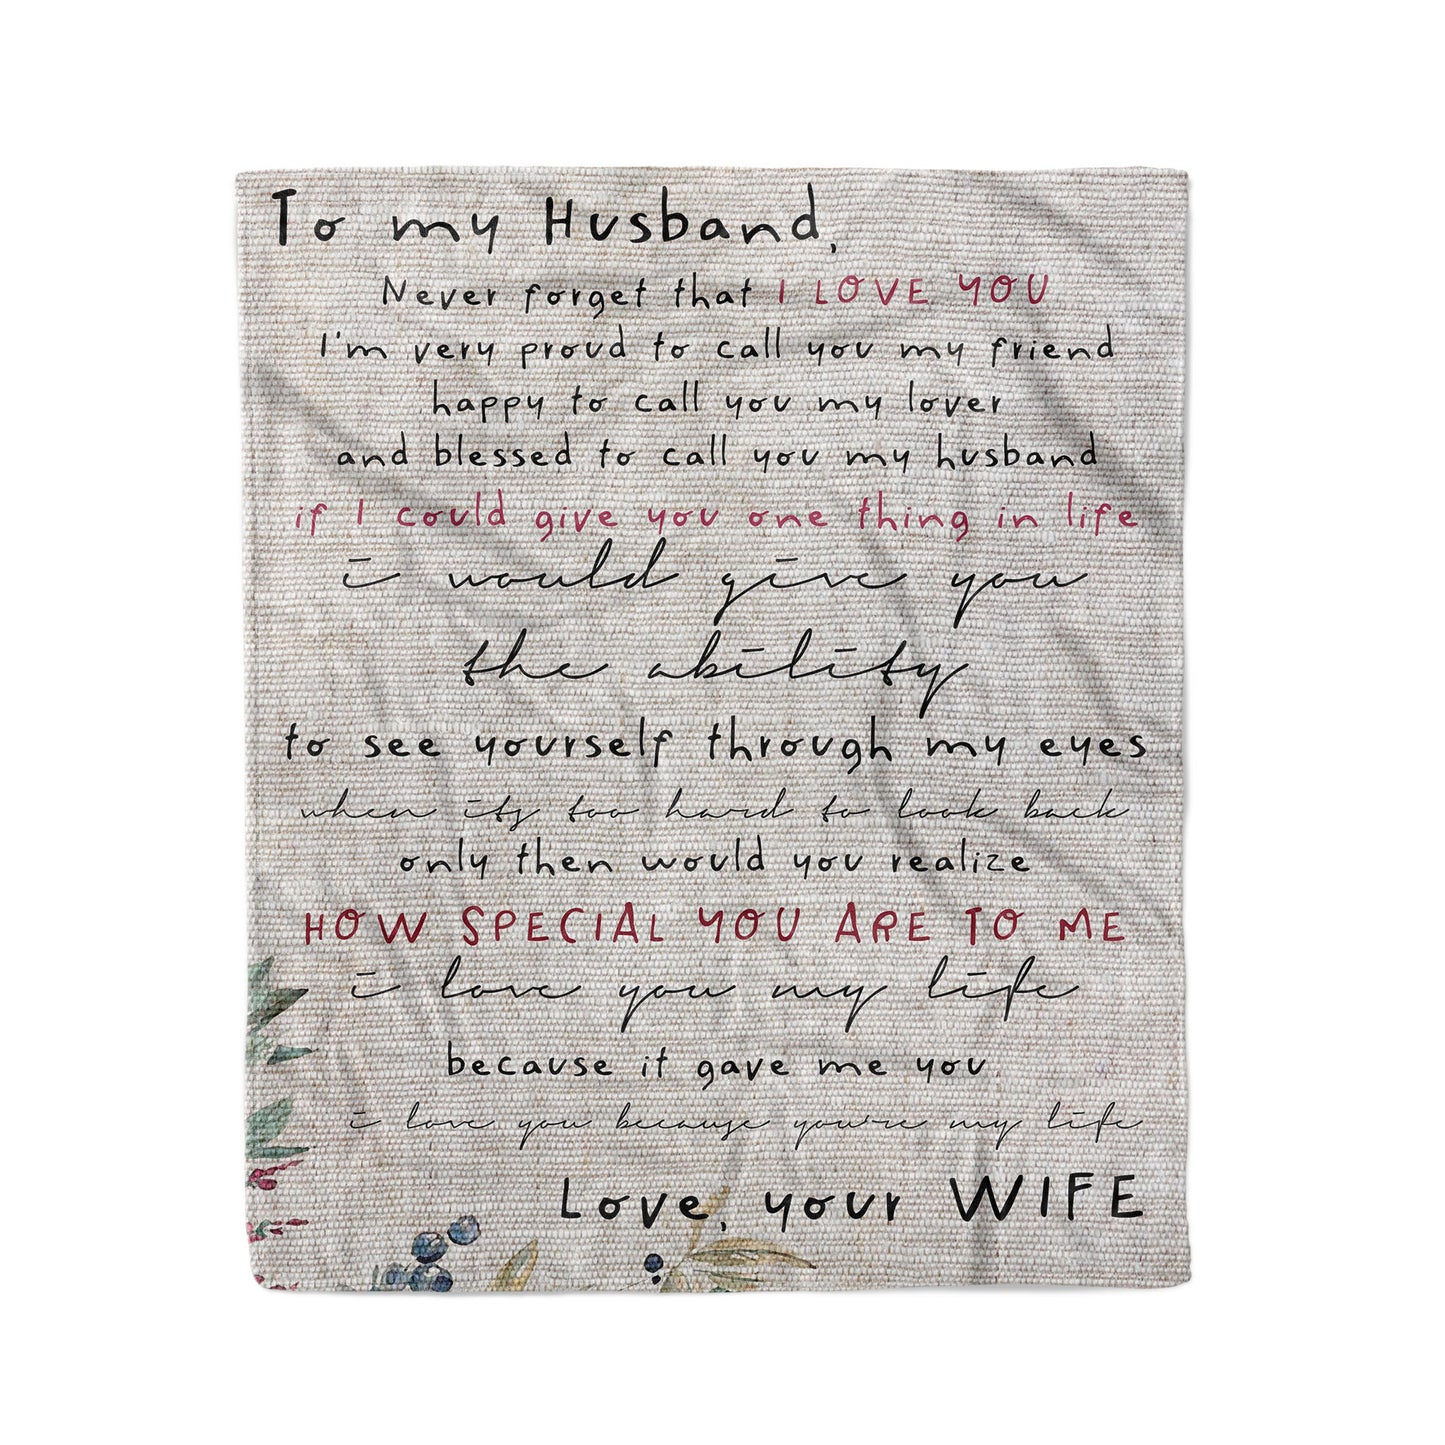 To my Husband,
Never forget that I LOVE YOU
I'm very proud to call you my friend
happy to call you my lover
and blessed to call you my husband
if I could give you one thing in life
i would give you
the ability
to see yourself through my eyes
when its too hard to look back
only then would you realize
HOW SPECIAL YOU ARE TO ME
i love you my life
because it gave me you
i love you because you're my life
Love, your WIFE